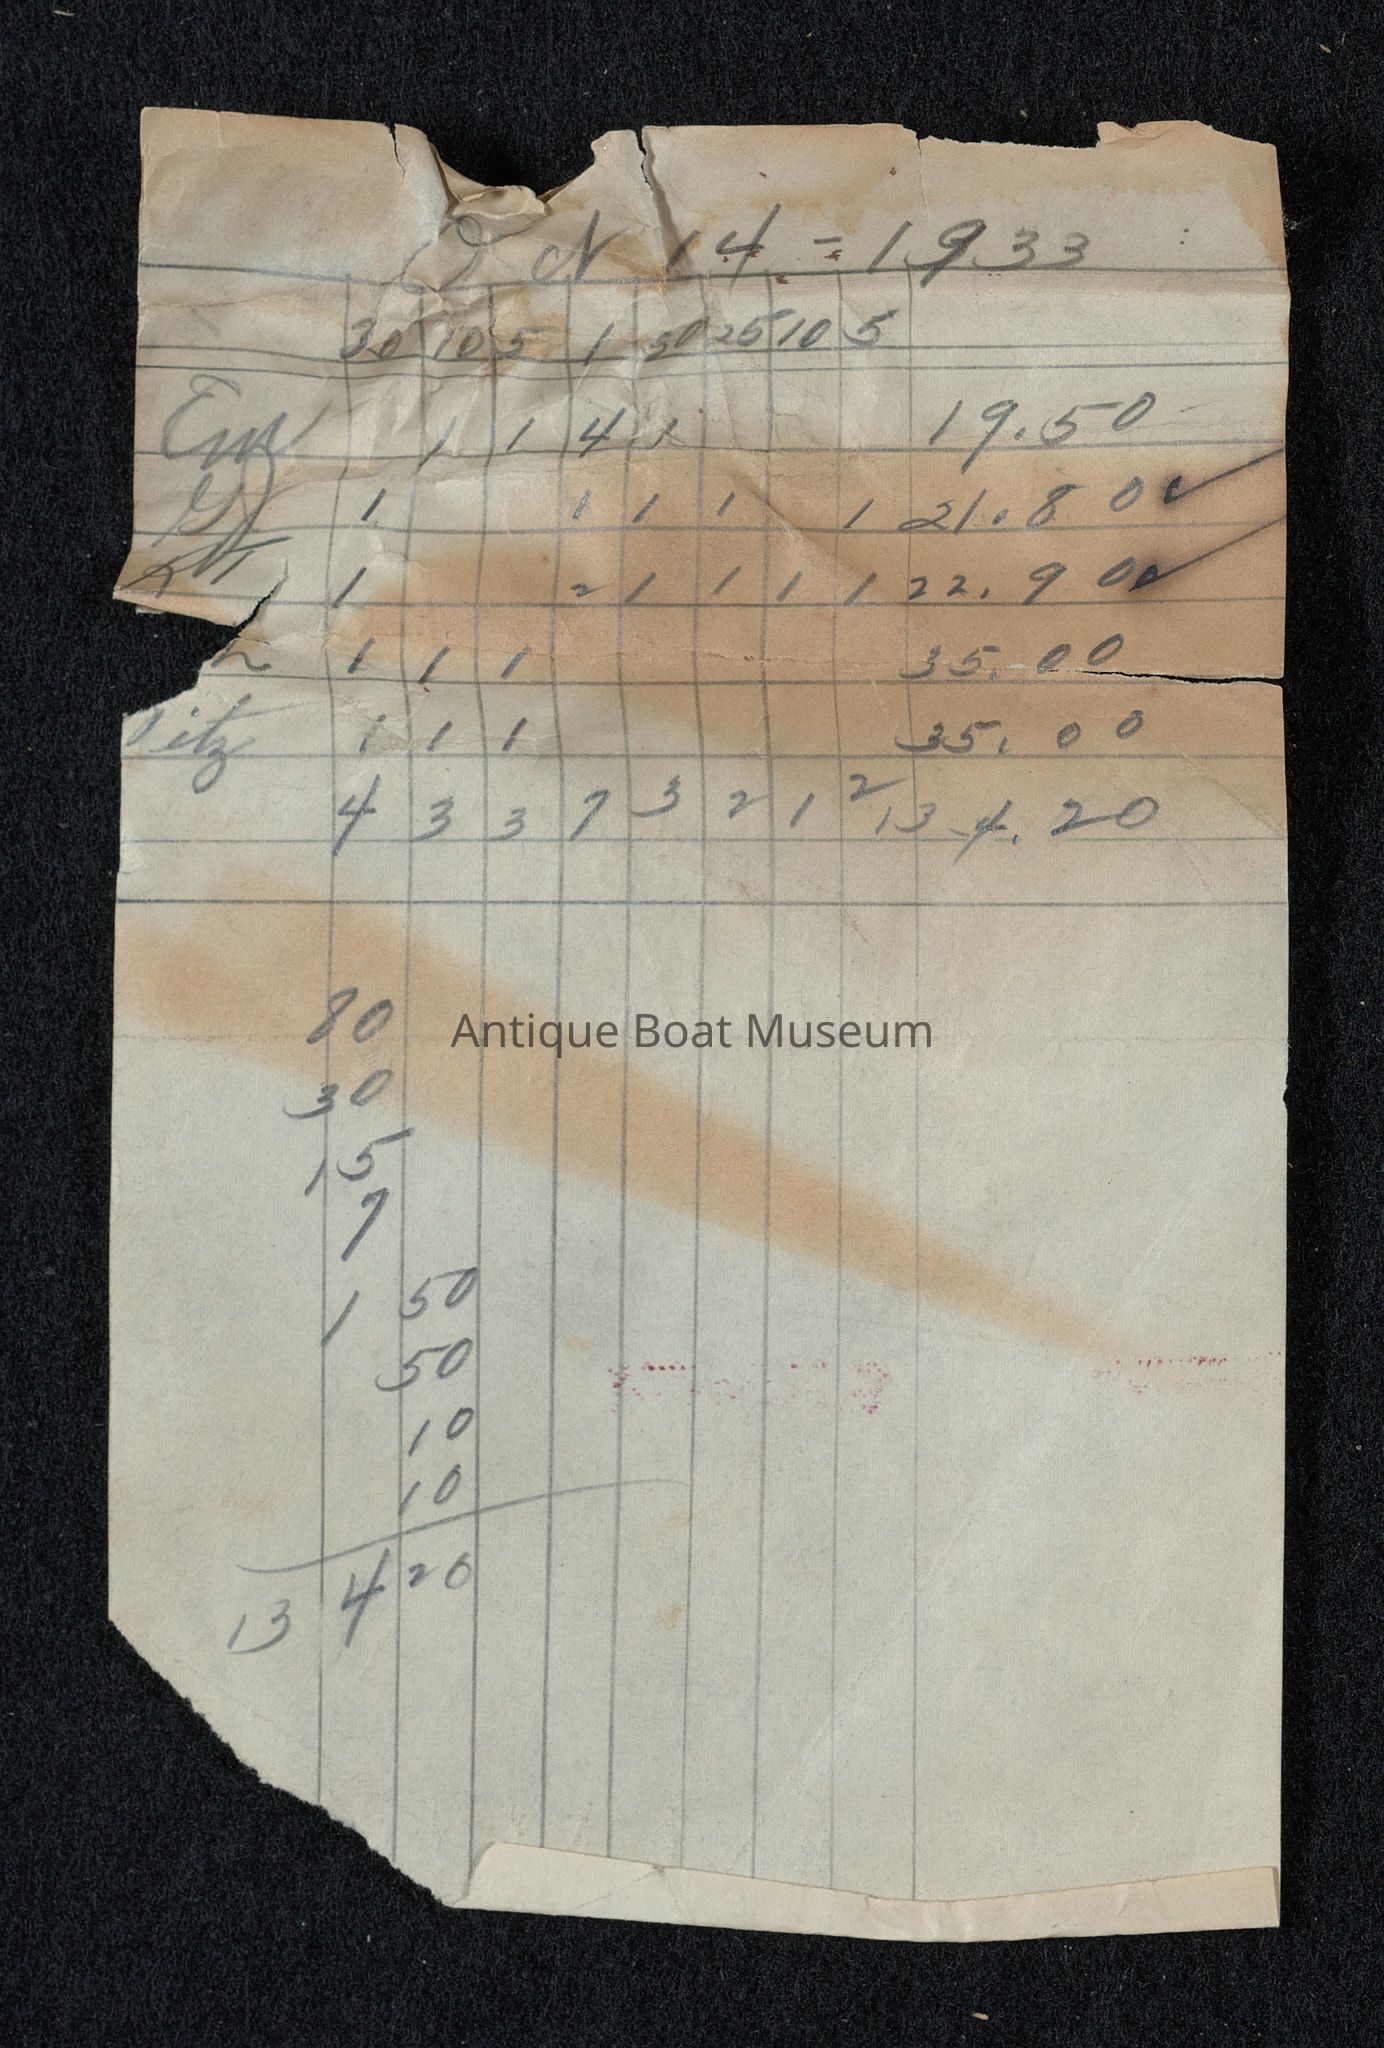 O N 14 - 1933
30 10 5 1 50 25 10 5
Em 1 1 4 1 19.50
1 1 1 1 1 21.80 ✓
1 2 1 1 1 1 22.90 ✓
1 1 1 35.00
itz 1 1 1 35.00
4 3 3 7 3 2 1 2 134.20
80
Antique Boat Museum
30
15
7
1 50
50
10
10
134 20